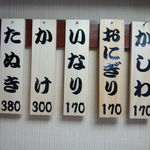 かしわ
170
おにぎり
170
いなり
170
かけ
300
たぬき
380